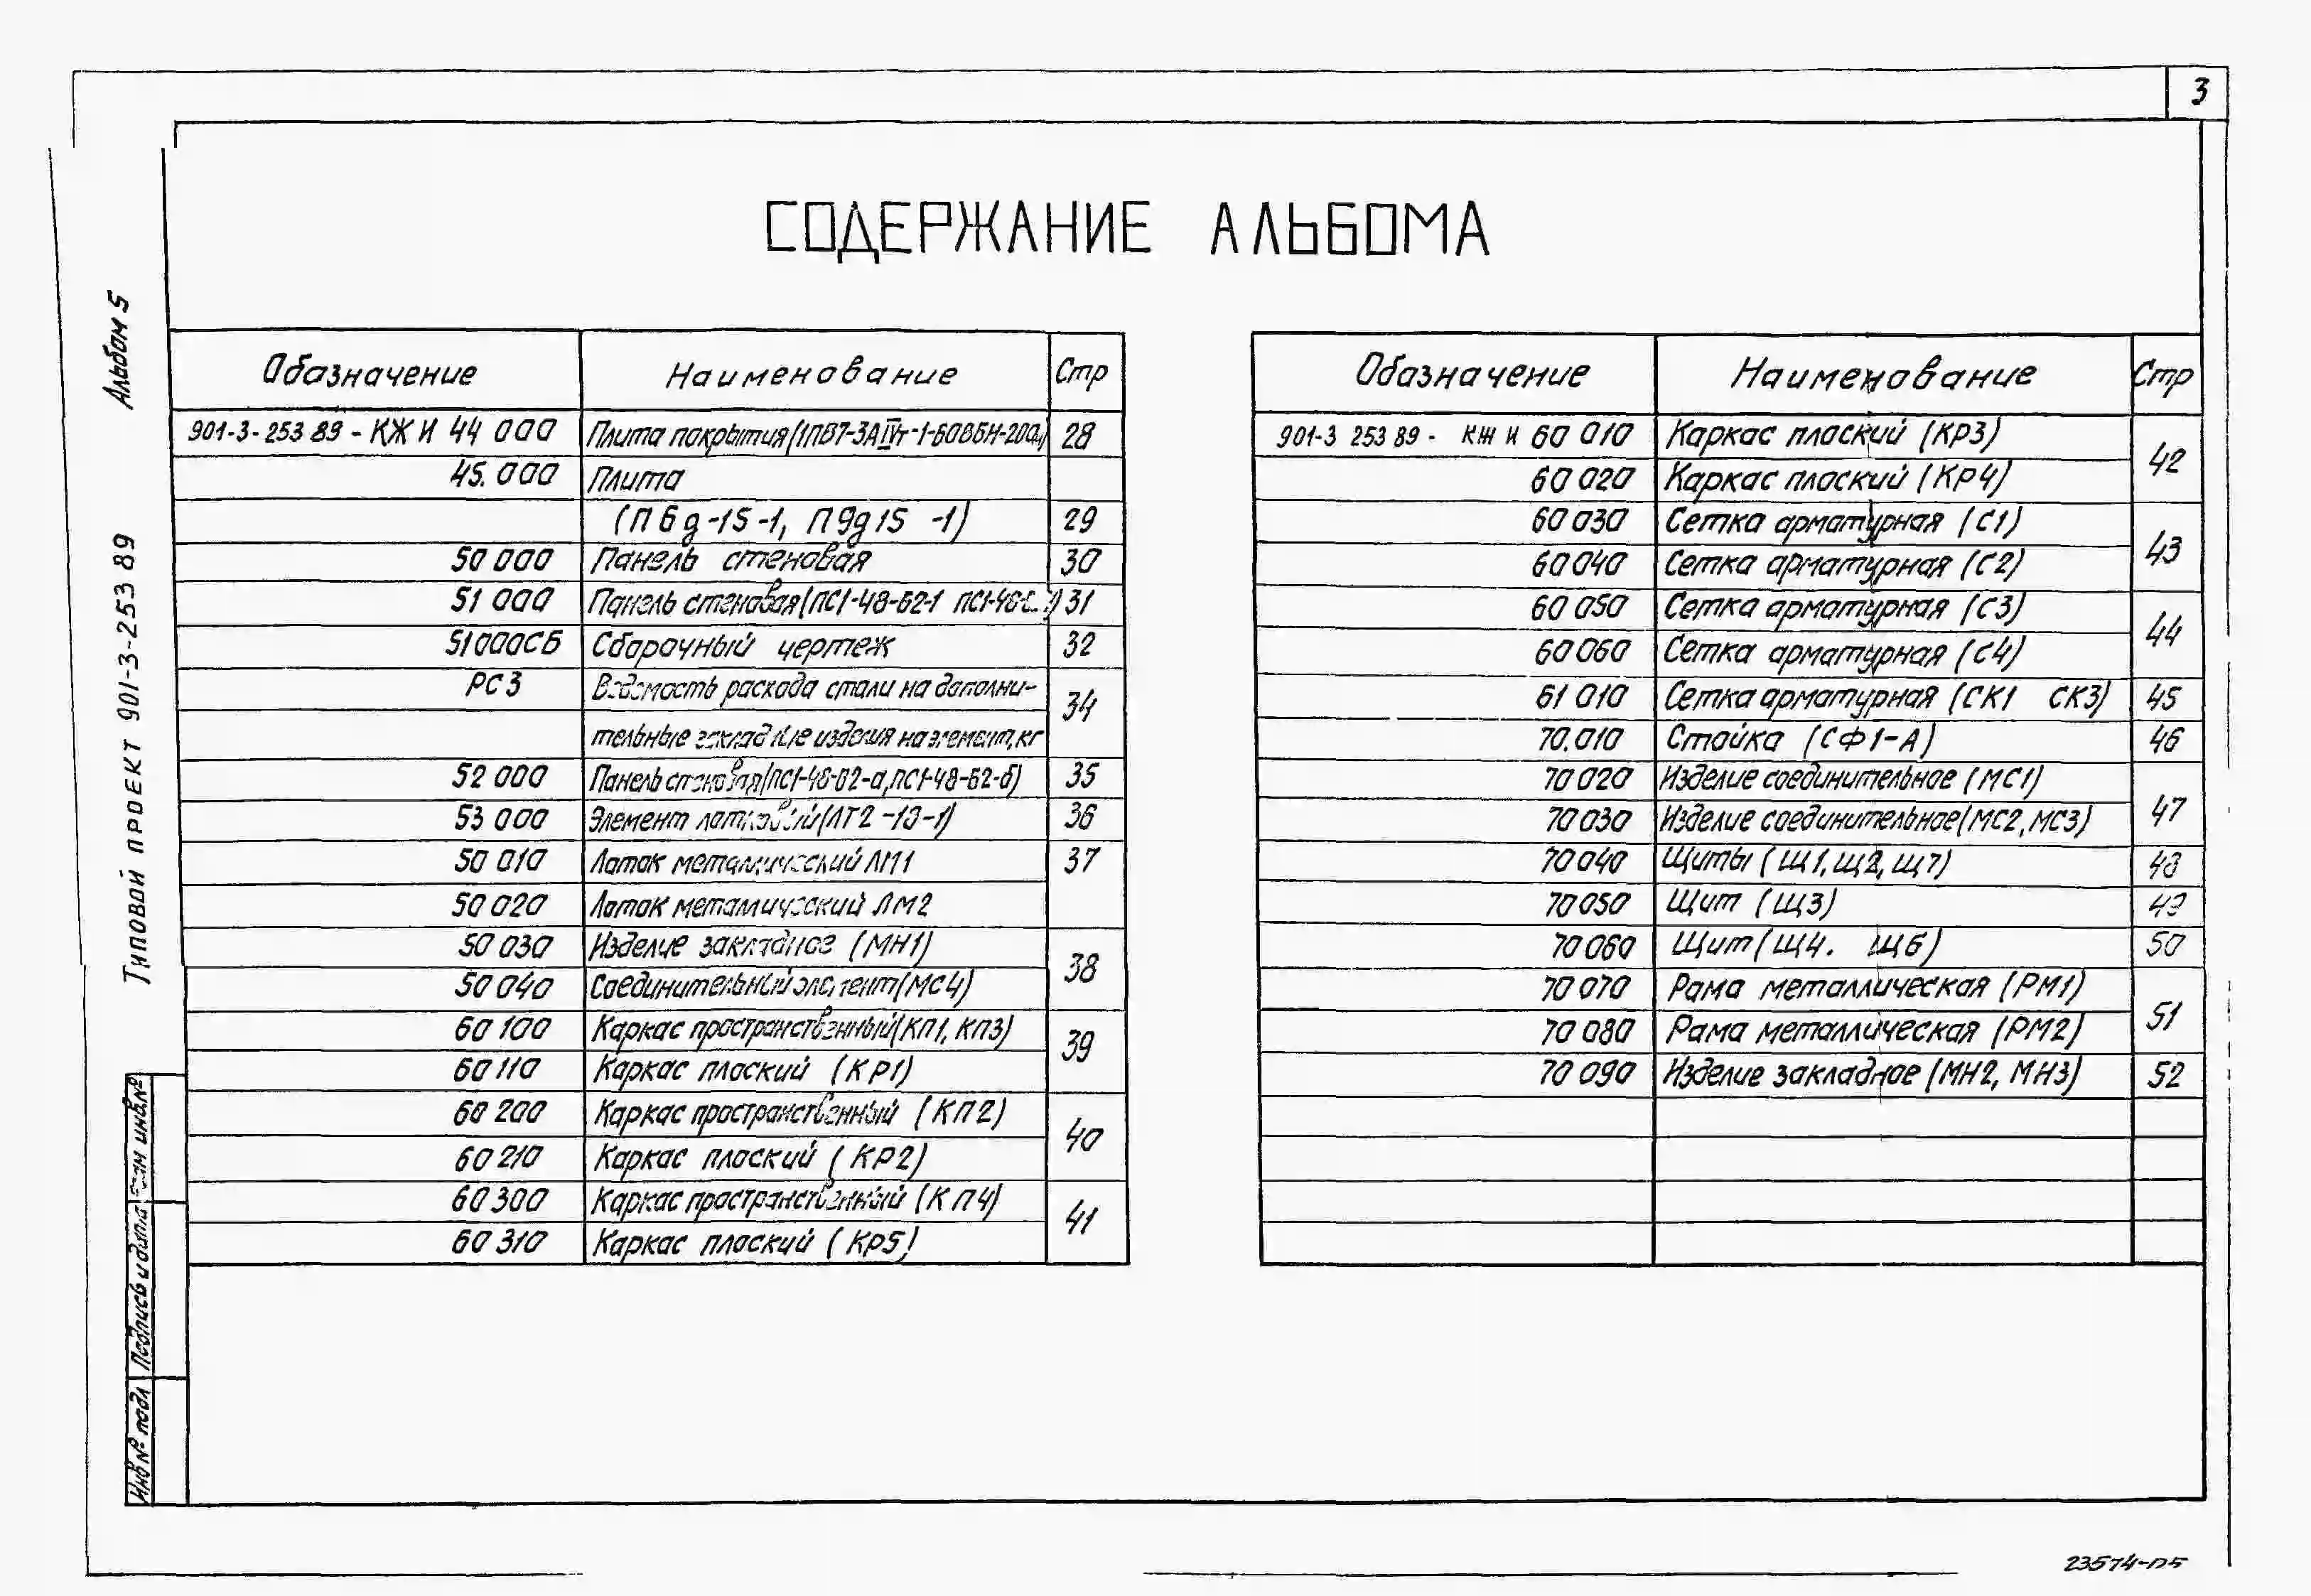 3
СОДЕРЖАНИЕ АЛЬБОМА
Альбом 5
Типовой проект 901-3-253 89
Обозначение Наименование Стр
901-3-253 89 - КЖ И 44 000 Плита покрытия (1ПВ7-3АIVт-1-60ВБН-200а) 28
45.000 Плита
(П6д-15-1, П9д15 -1) 29
50 000 Панель стеновая 30
51 000 Панель стеновая (ПС1-48-Б2-1 31
51000СБ Сборочный чертеж 32
РС3 Ведомость расхода стали на дополни- 34
тельные закладные изделия на элемент, кг
52 000 Панель стеновая (ПС1-48-Б2-а, ПС1-48-Б2-б) 35
53 000 Элемент лотковый (ЛТ2 -13-1) 36
50 010 Лоток металлический ЛМ1 37
50 020 Лоток металлический ЛМ2
50 030 Изделие закладное (МН1) 38
50 040 Соединительный элемент (МС4)
60 100 Каркас пространственный (КП1, КП3) 39
60 110 Каркас плоский (КР1)
60 200 Каркас пространственный (КП2) 40
60 210 Каркас плоский (КР2)
60 300 Каркас пространственный (КП4) 41
60 310 Каркас плоский (КР5)
Обозначение Наименование Стр
901-3 253 89 - КЖ И 60 010 Каркас плоский (КР3) 42
60 020 Каркас плоский (КР4)
60 030 Сетка арматурная (С1) 43
60 040 Сетка арматурная (С2)
60 050 Сетка арматурная (С3) 44
60 060 Сетка арматурная (С4)
61 010 Сетка арматурная (СК1 СК3) 45
70.010 Стойка (СФ1-А) 46
70 020 Изделие соединительное (МС1) 47
70 030 Изделие соединительное (МС2, МС3)
70 040 Щиты (Щ1, Щ2, Щ7) 48
70 050 Щит (Щ3) 49
70 060 Щит (Щ4. Щ6) 50
70 070 Рама металлическая (РМ1) 51
70 080 Рама металлическая (РМ2)
70 090 Изделие закладное (МН2, МН3) 52
Инв № подл
Подпись и дата
Взам инв №
23574-05